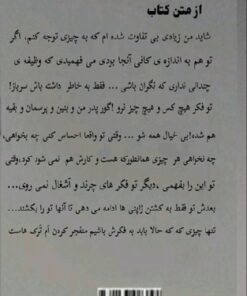 از متن کتاب
شاید من زیادی بی تفاوت شده ام که به چیزی توجه کنم، اگر
تو هم به اندازه ی کافی آنجا بودی می فهمیدی که وظیفه ی
چندانی نداری که نگران باشی ... فقط به خاطر داشته باش سرباز!
تو فکر هیچ کس و هیچ چیز نرو !گور پدر من و بنین و پرسمان و بقیه
هم شده!بی خیال همه شو ... وقتی تو واقعا احساس کنی چه بخواهی،
چه نخواهی هر چیزی همانطورکه هست و کارش هم نمی شود کرد،وقتی
تو این را بفهمی ،دیگر تو فکر های چرند و آشغال نمی روی...
بعدش تو فقط به کشتن ژاپنی ها ادامه می دهی تا آنها تو را بکشند...
تنها چیزی که که حالا باید به فکرش باشیم منفجر کردن ام تَرَک هاست